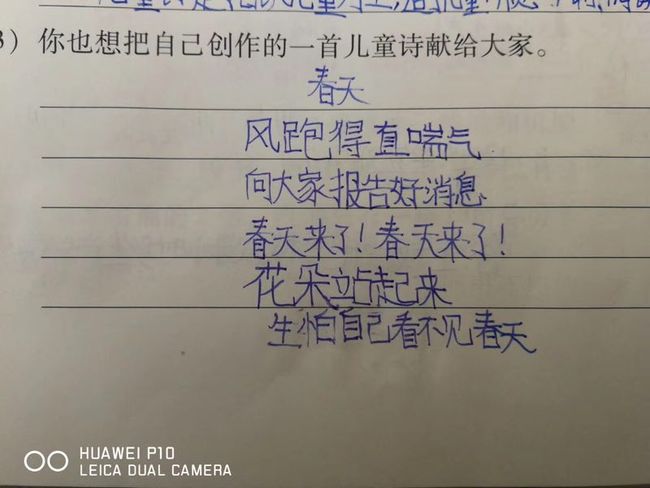 3）你也想把自己创作的一首儿童诗献给大家。
春天
风跑得直喘气
向大家报告好消息
春天来了！春天来了！
花朵站起来
生怕自己看不见春天
HUAWEI P10
LEICA DUAL CAMERA